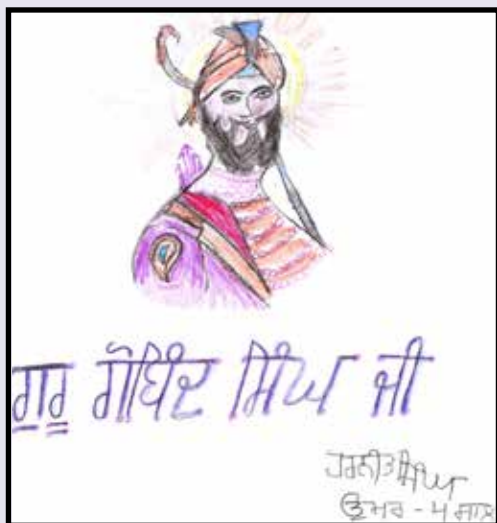 ਗੁਰੂ ਗੋਬਿੰਦ ਸਿੰਘ ਜੀ
ਹਰਨੀਤ ਸਿੰਘ
ਉਮਰ - ੫ ਸਾਲ